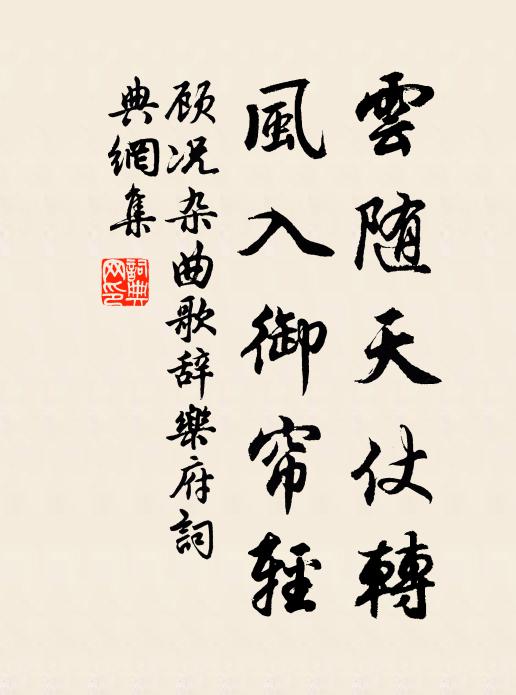 雲随天仗轉
風入御帘輕
顾况杂曲歌辞樂府詞
典網集
詞典
网印